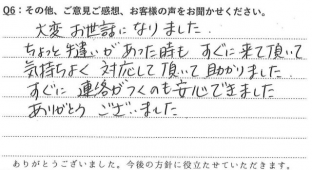 Q6：その他、ご意見ご感想、お客様の声をお聞かせください。
大変お世話になりました.
ちょっと違いがあった時も すぐに来て頂いて
気持ちよく 対応して頂いて助かりました.
すぐに 連絡がつくのも安心できました
ありがとう ございました
ありがとうございました。今後の方針に役立たせていただきます。